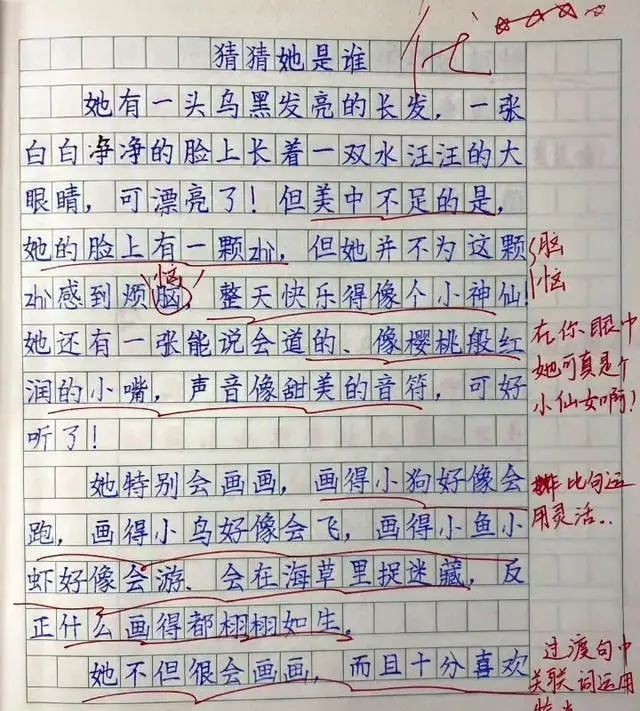 猜猜她是谁
优
她有一头乌黑发亮的长发，一张
白白净净的脸上长着一双水汪汪的大
眼睛，可漂亮了！但美中不足的是，
她的脸上有一颗zhì，但她并不为这颗
zhì感到烦脑，整天快乐得像个小神仙！
恼
脑
恼
她还有一张能说会道的、像樱桃般红
润的小嘴，声音像甜美的音符，可好
听了！
在你眼中
她可真是个
小仙女啊！
她特别会画画，画得小狗好像会
跑，画得小鸟好像会飞，画得小鱼小
虾好像会游、会在海草里捉迷藏，反
正什么画得都栩栩如生。
排比句运
用灵活..
她不但很会画画，而且十分喜欢
过渡句中
关联词运用